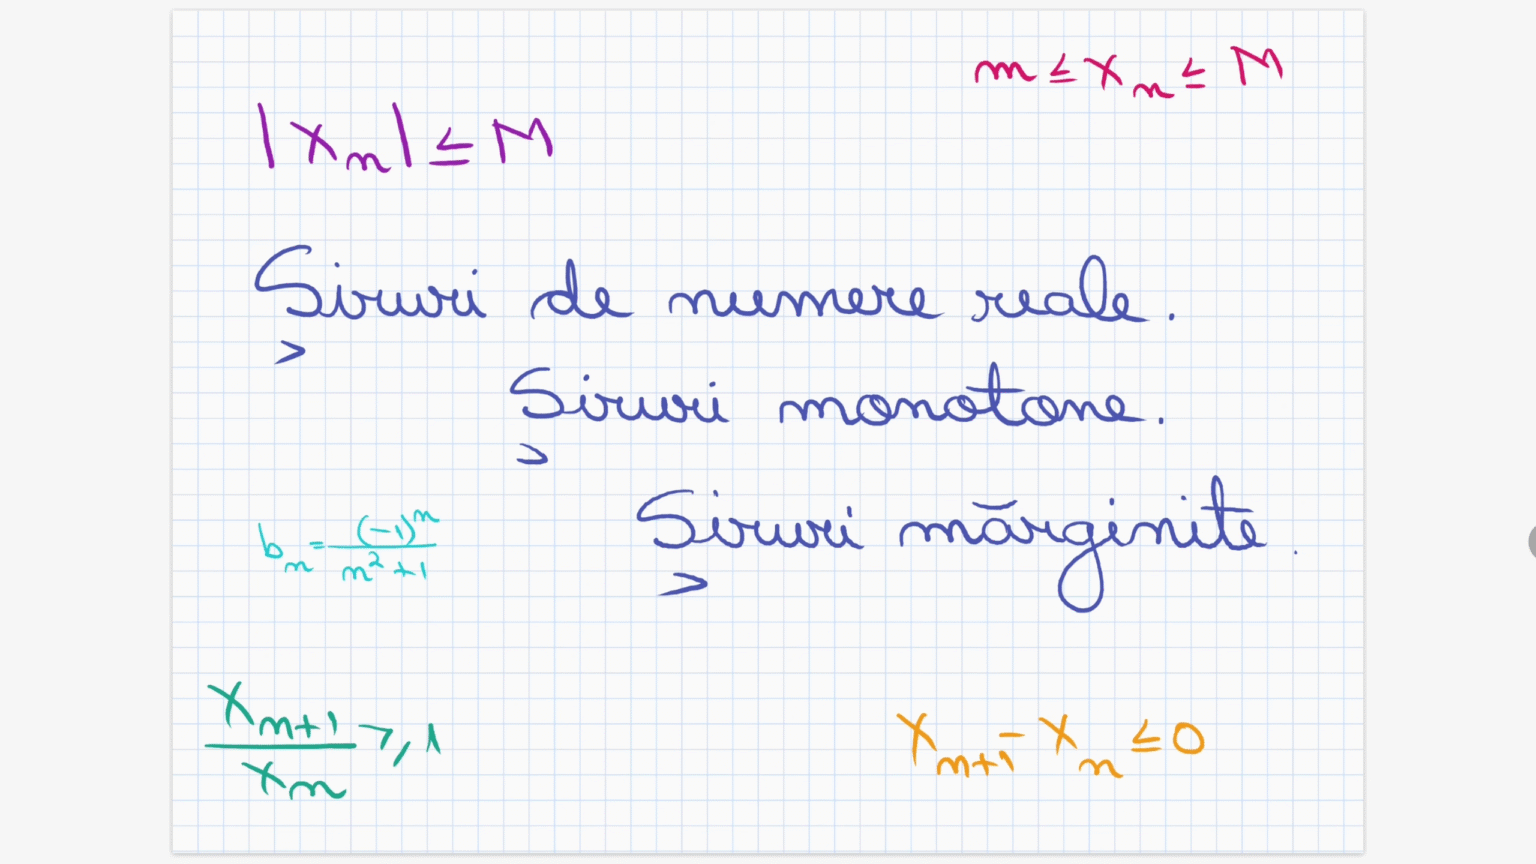 m ≤ xₙ ≤ M
|xₙ| ≤ M
Șiruri de numere reale.
Șiruri monotone.
Șiruri mărginite.
bₙ = (-1)ⁿ / (n² + 1)
xₙ₊₁ / xₙ ≥ 1
xₙ₊₁ - xₙ ≤ 0